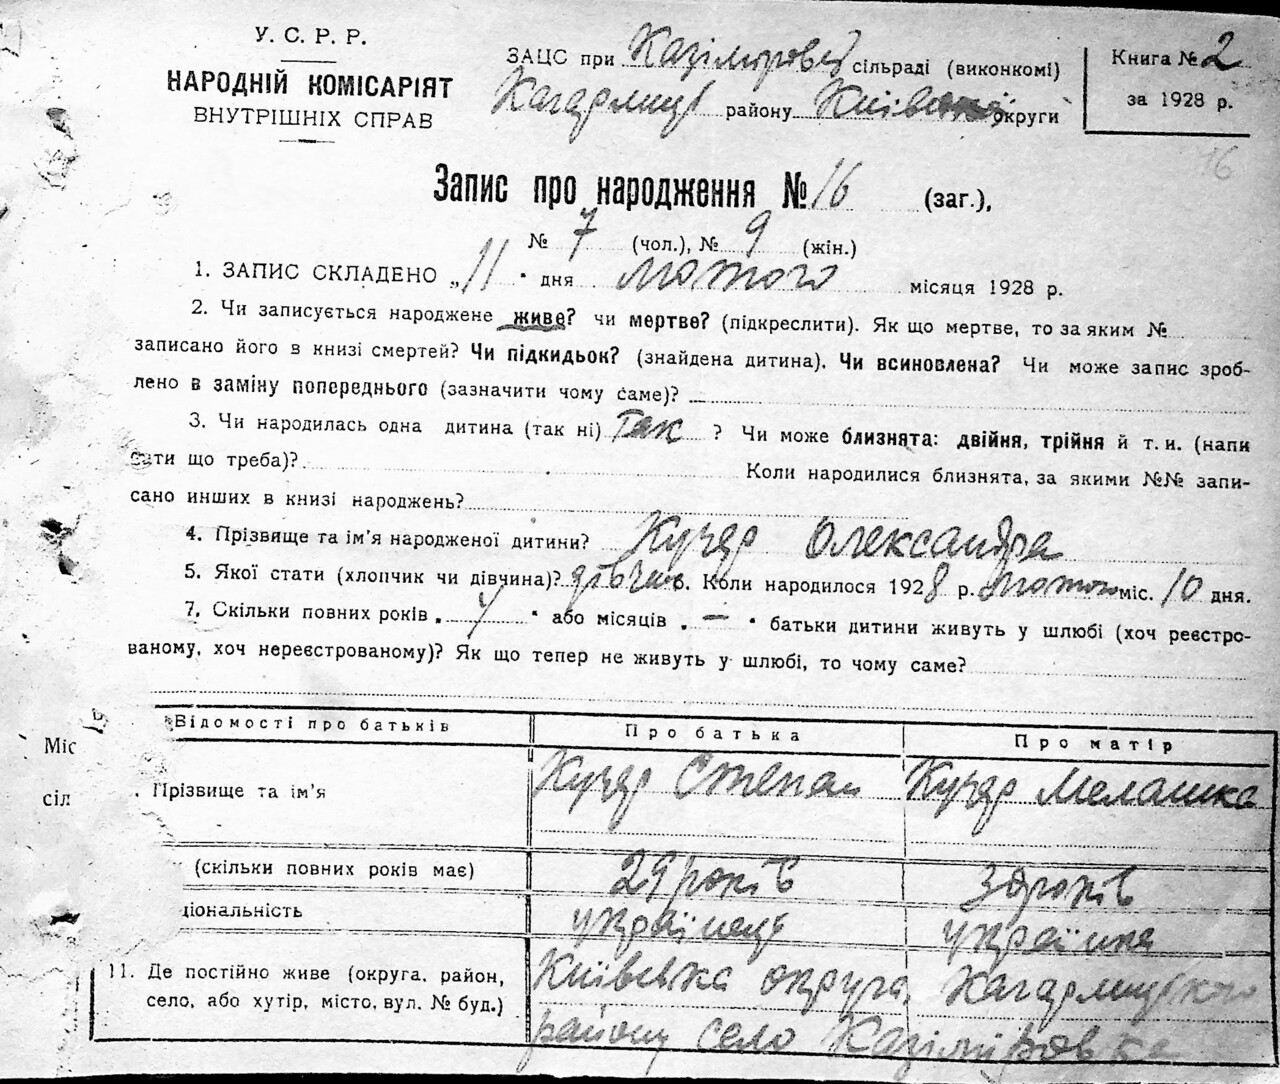 У. С. Р. Р.
НАРОДНІЙ КОМІСАРІЯТ
ВНУТРІШНІХ СПРАВ
ЗАЦС при Казіміровці сільраді (виконкомі)
району Київської округи
Книга № 2
за 1928 р.
16
Запис про народження № 16 (заг.),
№ 7 (чол.), № 9 (жін.)
1. ЗАПИС СКЛАДЕНО „11" дня лютого місяця 1928 р.
2. Чи записується народжене живе? чи мертве? (підкреслити). Як що мертве, то за яким №
записано його в книзі смертей? Чи підкидьок? (знайдена дитина). Чи всиновлена? Чи може запис зроб-
лено в заміну попереднього (зазначити чому саме)?
3. Чи народилась одна дитина (так ні) Так ? Чи може близнята: двійня, трійня й т. и. (напи
сати що треба)? Коли народилися близнята, за якими №№ запи-
сано инших в книзі народжень?
4. Прізвище та ім'я народженої дитини? Кучер Олександра
5. Якої стати (хлопчик чи дівчина)? дівчин. 6. Коли народилося 1928 р. лютого міс. 10 дня.
7. Скільки повних років „ " або місяців „ — " батьки дитини живуть у шлюбі (хоч реєстро-
ваному, хоч нереєстрованому)? Як що тепер не живуть у шлюбі, то чому саме?
Відомості про батьків Про батька Про матір
Міс
сіл
Прізвище та ім'я Кучер Степан Кучер Мелашка
(скільки повних років має) 29 років років
ціональність українець українка
11. Де постійно живе (округа, район,
село, або хутір, місто, вул. № буд.)
Київська округа, Кагарлицького
району село Казіміровка